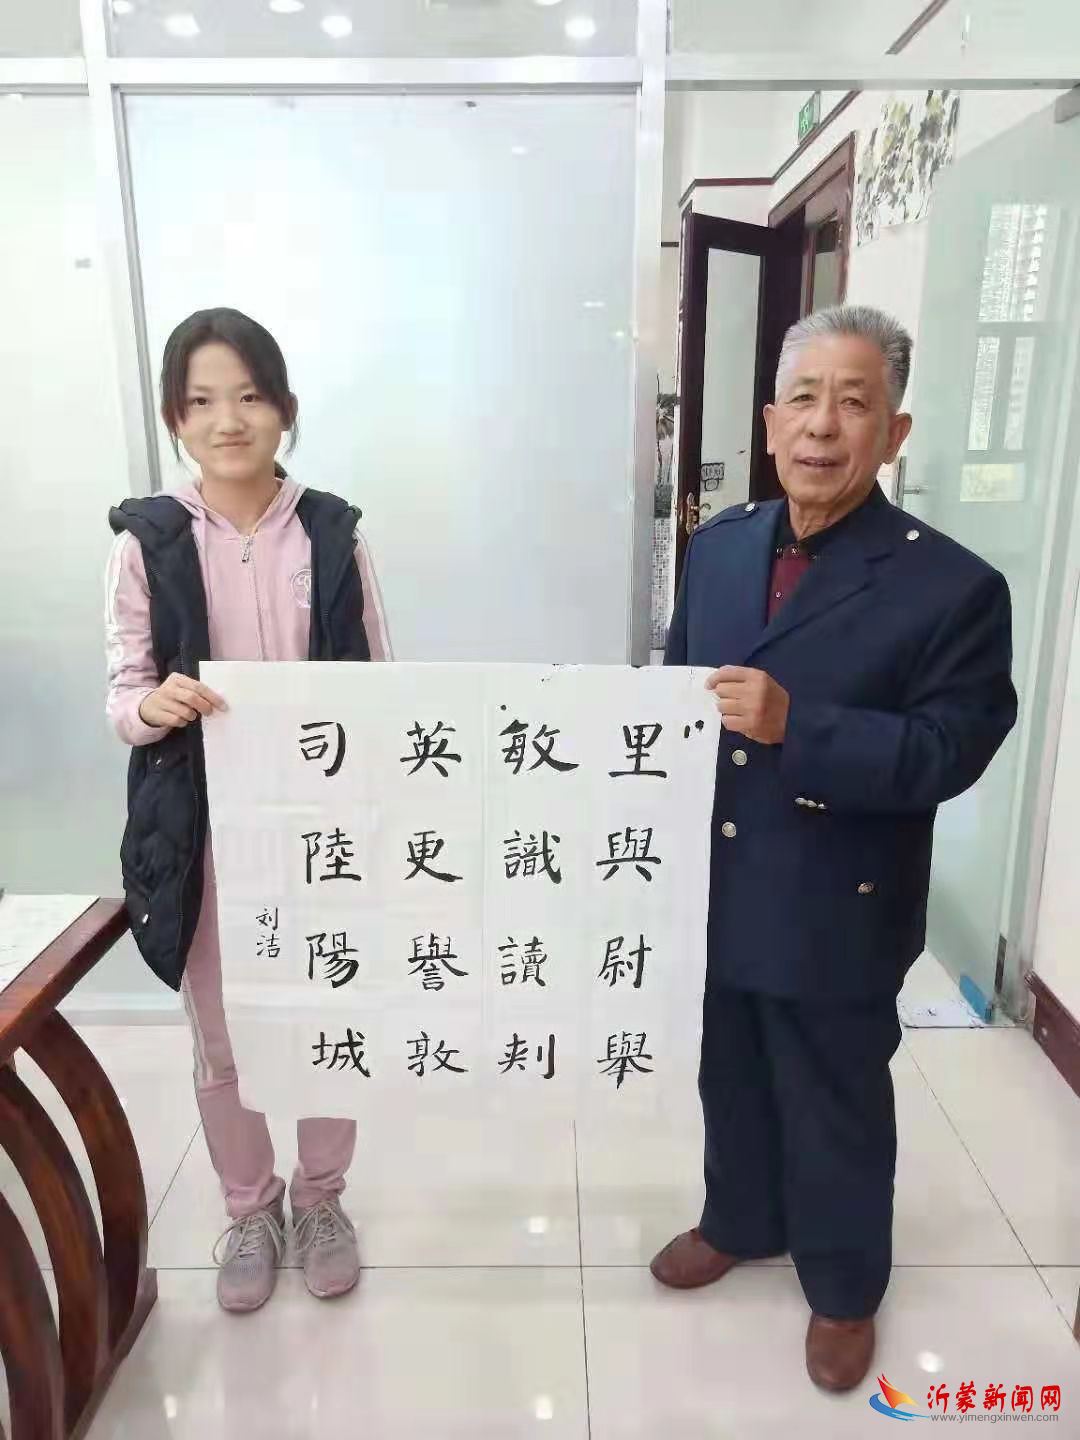 里與尉舉
敏識讀刾
英更譽敦
司陸陽城
刘洁
沂蒙新闻网
www.yimengxinwen.com